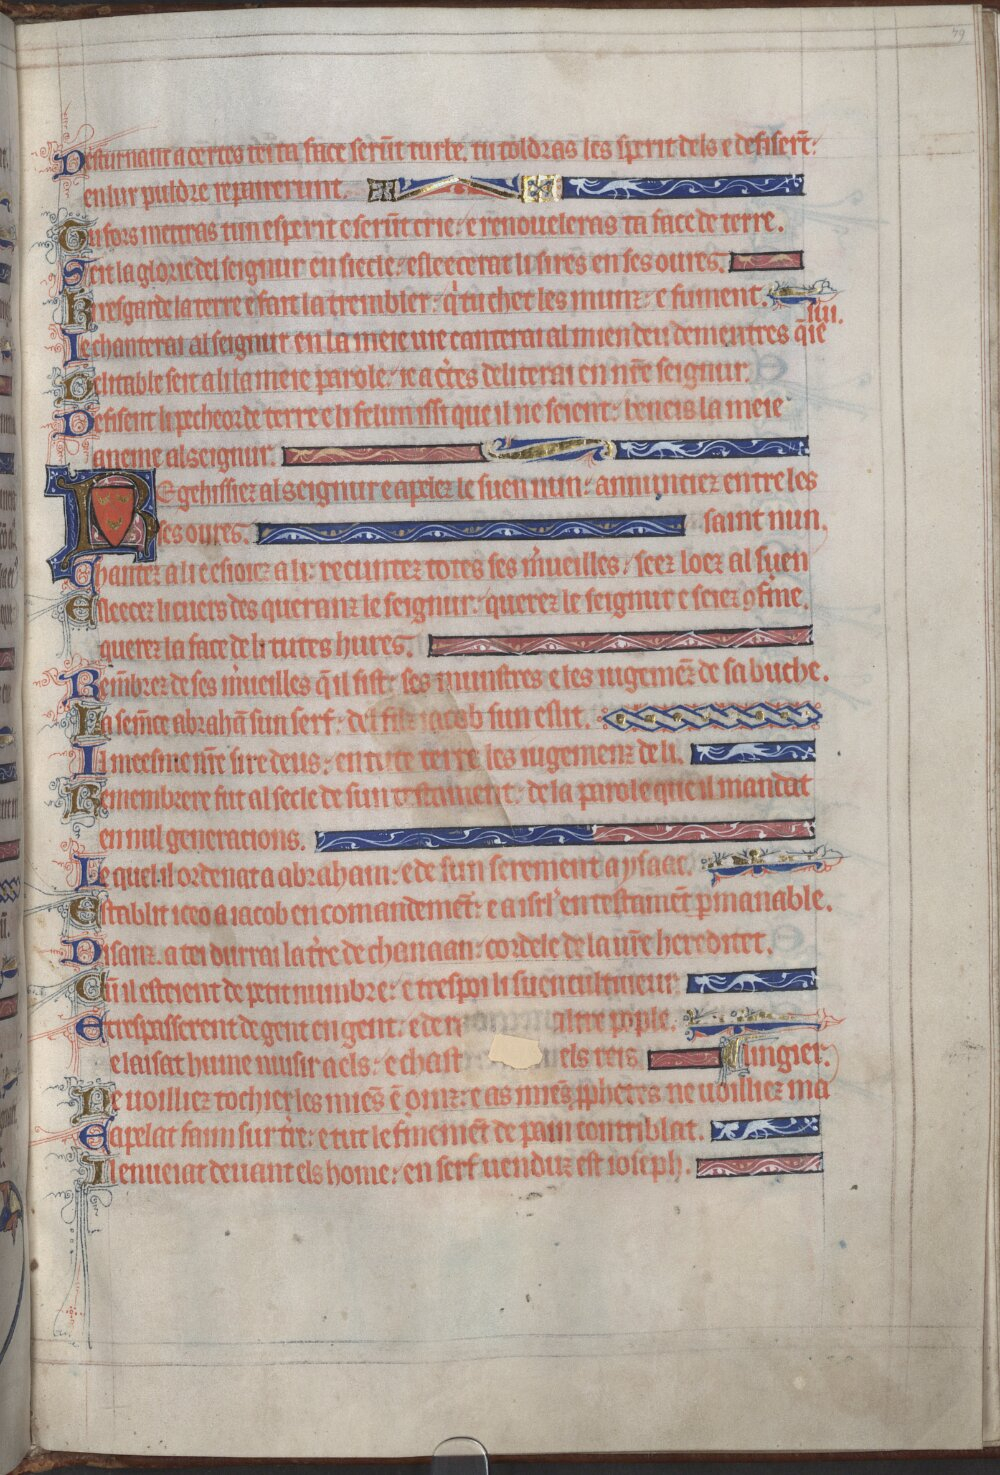 79
Desturnant acertes tei ta face serunt turbe. tu toldras les sperit dels e defiserunt:
en lur puldre repairerunt.
Tu fors mettras tun esperit e serunt crie: e renoueleras ta face de terre.
Seit la glorie del seignur en siecle: esleecerat li sires en ses oures.
Ki resgarde la terre e fait la trembler: q̃ tuchet les munz: e fument.
Je chanterai al seignur en la meie uie canterai al mien deu dementres q̃ ie
sui.
Delitable seit a li la meie parole: ie acertes deliterai en nr̃e seignur.
Defisent li pecheor de terre e li felun issi que il ne seient: beneis la meie
aneme al seignur.
Regehissiez al seignur e apelez le suen nun: annunciez entre les
ses oures. saint nun.
Chantez a li e esioiez a li: recuntez totes ses m̃ueilles: seez loez al suen
Esleecez li cuers des queranz le seignur: querez le seignur e seiez 9 fine.
querez la face de li tutes hures.
Remẽbrez de ses m̃ueilles q̃ il fist: ses munstres e les iugemẽz de sa buche.
La semẽce abrahã sun serf: del fiz iacob sun eslit.
Il meesme nr̃e sire deus: en tute terre les iugemenz de li.
Remembrere fut al secle de sun testament: de la parole que il mandat
en mil generations.
Le quel il ordenat a abraham: e de sun serement a ysaac.
Establit iceo a iacob en comandemẽt: e a isrl' en testamẽt p̱manable.
Disanz. a tei durrai la tr̃e de chanaan: cordele de la ur̃e hereditet.
Cũ il esteient de petit numbre: e trespoi li suen cultiueur.
E trespasserent de gent en gent: e de altre pople.
e laisat hume nusir a els: e chast els reis
Ne uoilliez tochier les miẽs ẽ oinz: e as miẽs p̱phetes ne uoilliez ma
lingier.
E apelat faim sur tr̃e: e tut le finemẽt de pain contriblat.
Il enueiat deuant els home: en serf uenduz est ioseph.